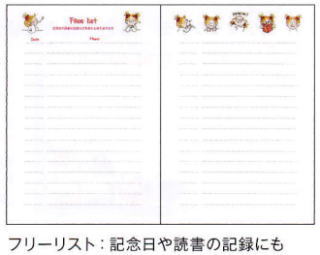 Free list
Date
フリーリスト：記念日や読書の記録にも